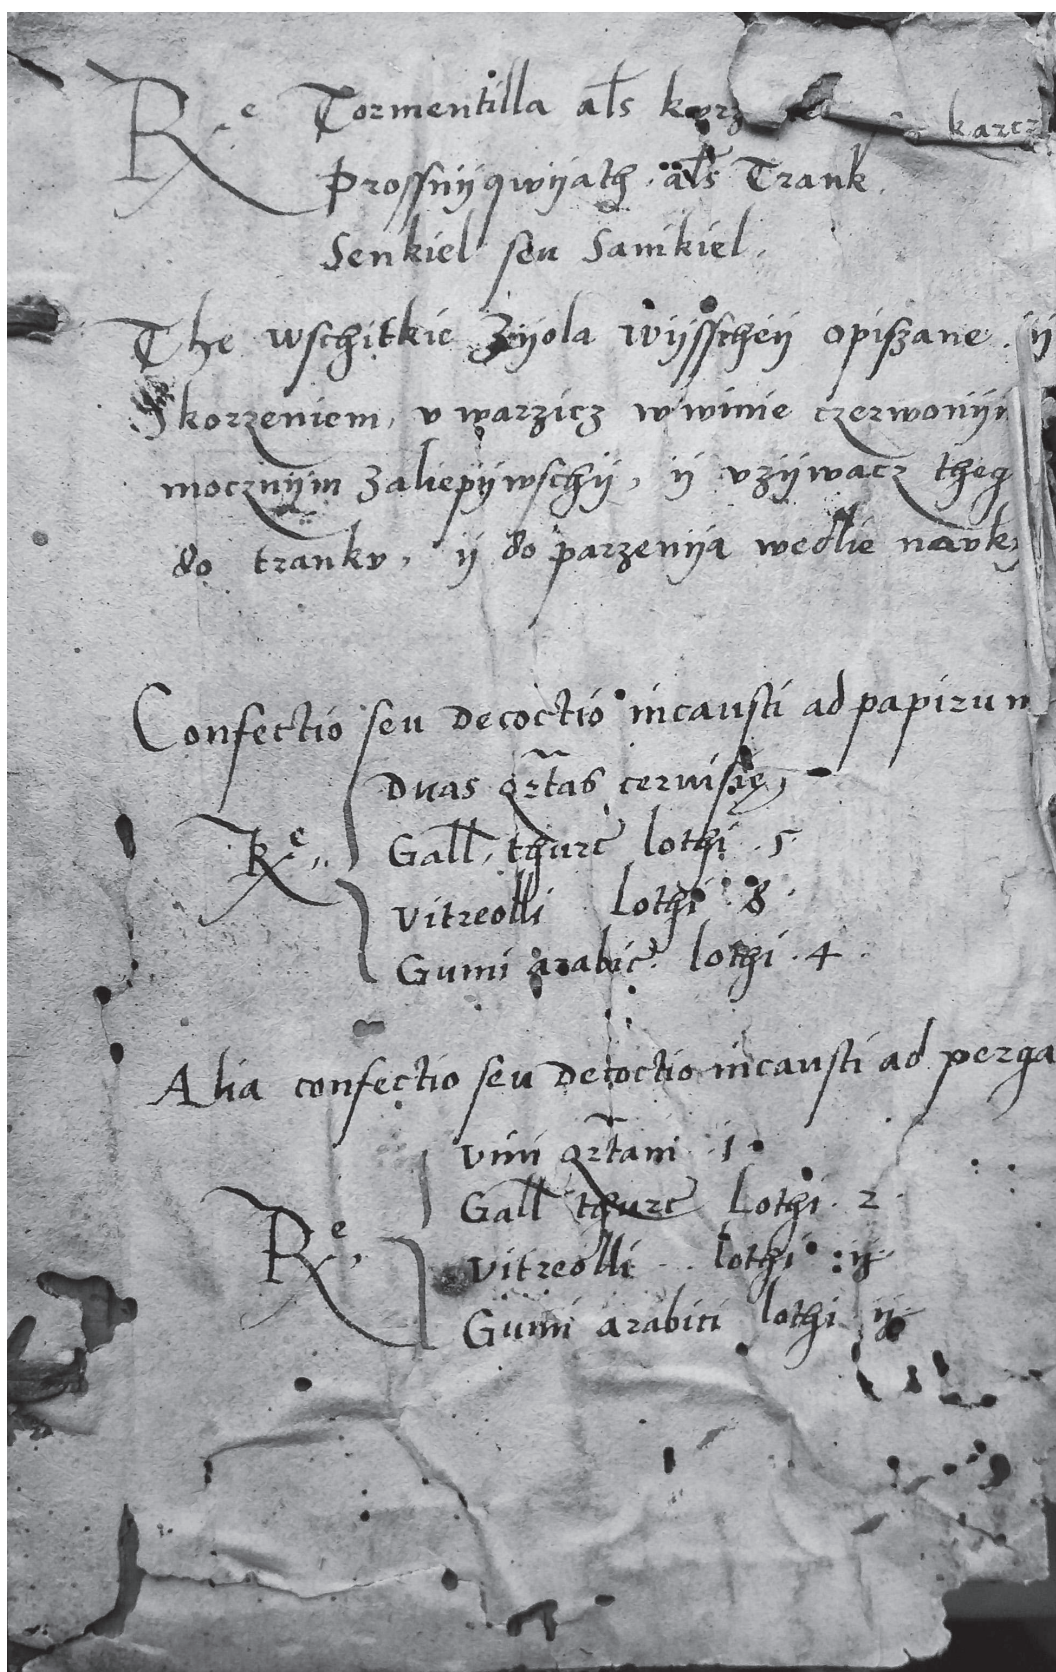 Re Tormentilla als karcz
Prossnijqwijath als Trank
Senkiel seu Sanikiel
The wschitkie Zijola wijsscheij opiszane ij
Skorzeniem, v warzicz w winie czerwonijm
mocznijm Zaliepijwschij, ij vzijwacz theg
do trankv, ij do parzenija wedlie navkj
Confectio seu decoctio incausti ad papirum
Duas qrtas cervisie,
Re Gall, thurc lothi 5
Vitreolli Lothi 8
Gumi arabic lothi 4
Alia confectio seu Decoctio incausti ad perga
Vini qrtam 1
Gall thurc Lothi 2
Re Vitreolli lothi ij
Gumi arabici lothi ij